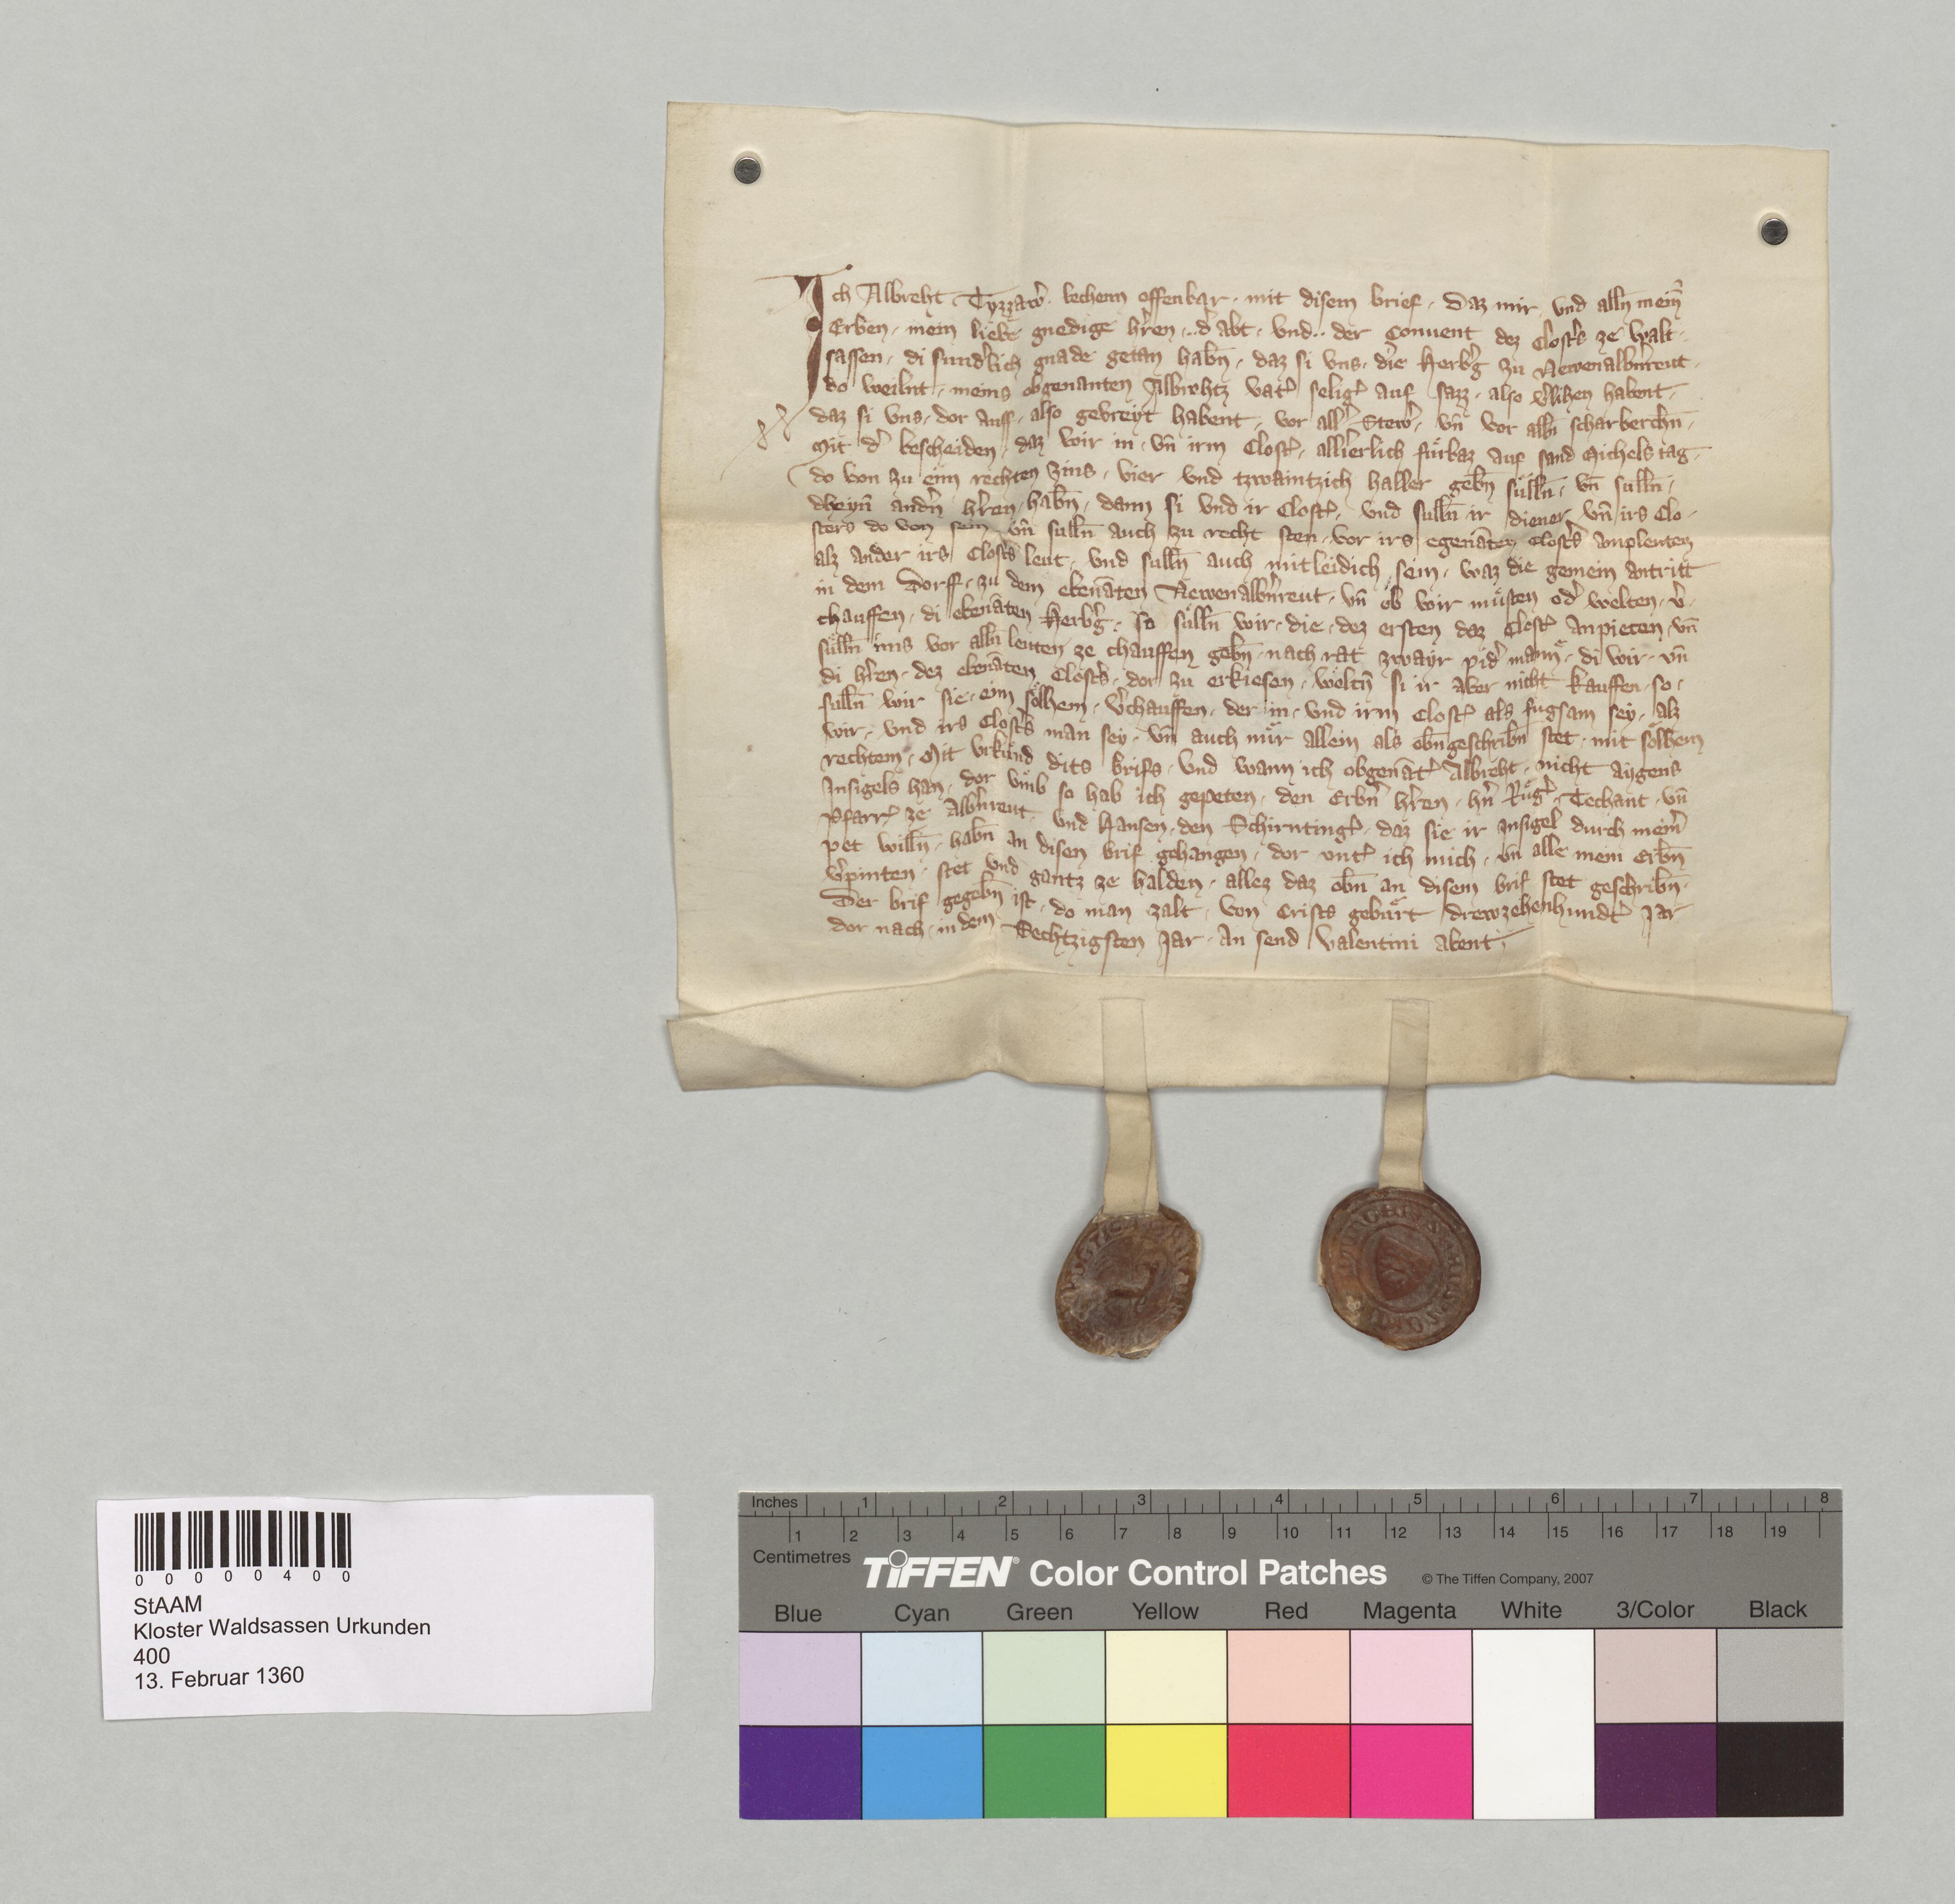 Ich Albreht Tyzzaw͛ · bechenn offenbar · mit disem brief · Daz mir · vnd alln̄ mein̄
Erben · mein liebe gnedige h͛ren · .. d͛ abt · vnd .. der Conuent dez Clost͛s ze Walt-
sassen · di sund͛lich gnade getan habn̄ · daz si vns · die Herb͛g zu Newenalbn͛reut ·
do weilnt · meins obgenanten Albrehtz vat͛ selig͛ auf sazz · also v͛lihen habent ·
daz si vns · dor auff · also gevreyt habent · vor all͛ Stew͛ · vn̄ vor alln̄ scharberchn̄ ·
Mit d͛ bescheiden · daz wir in · vn̄ irm Clost͛ · allierlich fuͤrbaz auf sand Michels tag
do von zu eim rechten zins · vier vnd tzwaintzich haller gebn̄ suͤlln̄ · vn̄ sulln̄ ·
dheyn̄ andn͛ h͛ren habn̄ · dann si vnd ir Clost͛ · vnd sulln̄ ir diener vn̄ irs Clo-
sters do von sein vn̄ sulln̄ auch zu recht sten · vor irs egenāten Clost͛s amplenten
alz ander irs Clost͛s leut · vnd sulln̄ auch mitleidich sein · waz die gemein antritt
in dem Dorff · zu dem ebenāten Newenalbn͛reut · vn̄ ob wir muͤsten od͛ welten · v͛-
chauffen · di ebenāten Herb͛g · so suͤlln̄ wir · die · dez ersten daz Clost͛ anpieten · vn̄
suͤlln̄ ims vor alln̄ leuten ze chauffen gebn̄ · nach rat zwayr pid͛ mann͛ · di wir · vn̄
di h͛ren · dez ebenāten Clost͛s · dor zu erkiesen · woͤltn̄ si ir aber nicht kauffen · so ·
sulln̄ wir sie · eim soͤlhem · v͛chauffen · der in · vnd irm Clost͛ als fugsam sey · alz
wir · vnd irs Clost͛s man sey · vn̄ auch nuͤr allein als obn̄geschribn̄ stet · mit soͤlhem
rechtem · Mit vrkuͤnd dits brifs · vnd wann ich obgenāt͛ Albreht · nicht aygens
Insigels han · dor vmb so hab ich gepeten · den Erbn̄ h͛ren · hn͛ Ruͤg͛ · Techant · vn̄
Pfarr͛ ze Albn͛reut · vnd Hansen · den Schirnting͛ · daz sie ir Insigel durch mein͛
pet willn̄ · habn̄ an disen brif gehangen · dor vnt͛ ich mich · vn̄ alle mein Erbn̄
v͛pinten · stet vnd gantz ze halden · allez daz obn̄ an disem brif stet geschribn̄ ·
Der brif gegebn̄ ist · do man zalt · von Crists gebuͤrt drewzehenhundt͛ Jar
dor nach · in dem Sechtzigsten Jar · An send Valentini abent ·
0 0 0 0 4 0 0
StAAM
Kloster Waldsassen Urkunden
400
13. Februar 1360
Inches 1 2 3 4 5 6 7 8
1 2 3 4 5 6 7 8 9 10 11 12 13 14 15 16 17 18 19
Centimetres
TIFFEN® Color Control Patches © The Tiffen Company, 2007
Blue Cyan Green Yellow Red Magenta White 3/Color Black